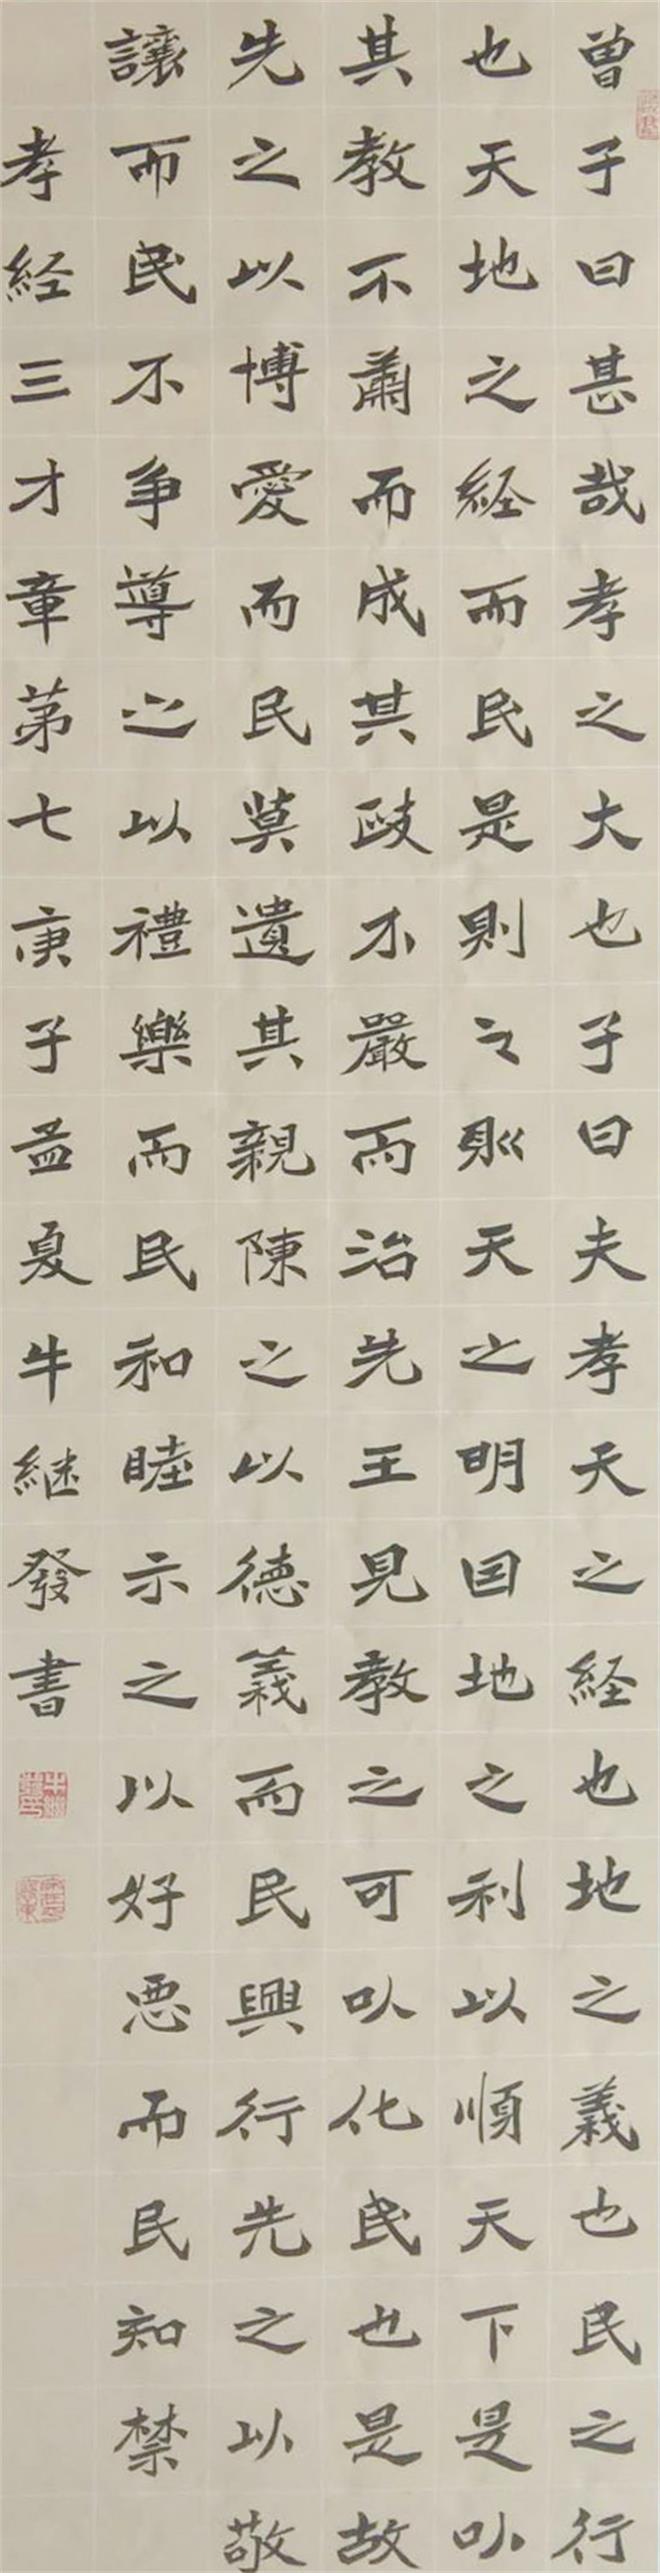 曾子曰甚哉孝之大也子曰夫孝天之経也地之義也民之行
也天地之経而民是則之則天之明因地之利以順天下是以
其教不肅而成其政不嚴而治先王見教之可以化民也是故
先之以博愛而民莫遺其親陳之以德義而民興行先之以敬
讓而民不爭導之以禮樂而民和睦示之以好惡而民知禁
孝経三才章第七庚子孟夏牛継發書